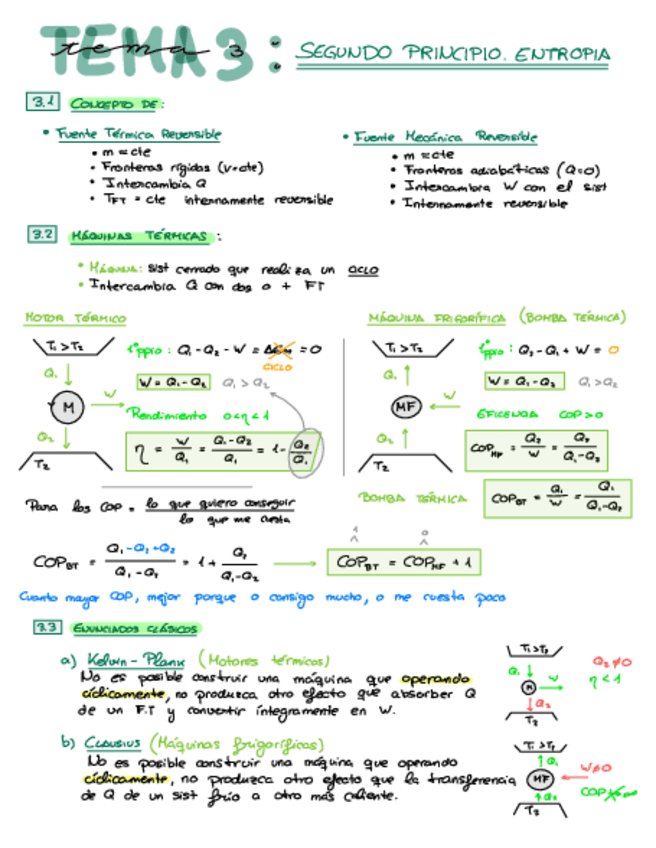 TEMA 3:
tema 3
SEGUNDO PRINCIPIO. ENTROPIA
3.1 CONCEPTO DE:
• Fuente Térmica Reversible
• m = cte
• Fronteras rígidas (V=cte)
• Intercambia Q
• T_FT = cte internamente reversible
• Fuente Mecánica Reversible
• m = cte
• Fronteras adiabáticas (Q=0)
• Intercambia W con el sist
• Internamente reversible
3.2 MÁQUINAS TÉRMICAS:
• MÁQUINA: sist cerrado que realiza un CICLO
• Intercambia Q con dos o + FT
MOTOR TÉRMICO
T₁ > T₂
Q₁
M
W
Q₂
T₂
1er ppio: Q₁ - Q₂ - W = = 0
CICLO
W = Q₁ - Q₂ Q₁ > Q₂
Rendimiento 0 < η < 1
η = W/Q₁ = (Q₁ - Q₂)/Q₁ = 1 - Q₂/Q₁
MÁQUINA FRIGORÍFICA (BOMBA TÉRMICA)
T₁ > T₂
Q₁
MF
W
Q₂
T₂
1er ppio: Q₂ - Q₁ + W = 0
W = Q₁ - Q₂ Q₁ > Q₂
EFICIENCIA COP > 0
COP_MF = Q₂/W = Q₂/(Q₁ - Q₂)
BOMBA TÉRMICA COP_BT = Q₁/W = Q₁/(Q₁ - Q₂)
Para los COP = lo que quiero conseguir / lo que me cuesta
COP_BT = (Q₁ - Q₂ + Q₂)/(Q₁ - Q₂) = 1 + Q₂/(Q₁ - Q₂) → COP_BT = COP_MF + 1
1 0
^ ^
Cuanto mayor COP, mejor porque o consigo mucho, o me cuesta poco
3.3 ENUNCIADOS CLÁSICOS
a) Kelvin - Plank (Motores térmicos)
No es posible construir una máquina que operando
cíclicamente, no produzca otro efecto que absorber Q
de un F.T y convertir íntegramente en W.
T₁ > T₂
Q₁
M
W
Q₂
T₂
Q₂ ≠ 0
η < 1
b) CLAUSIUS (Máquinas frigoríficas)
No es posible construir una máquina que operando
cíclicamente, no produzca otro efecto que la transferencia
de Q de un sist frío a otro más caliente.
T₁ > T₂
Q₁
MF
W ≠ 0
Q₂
T₂
COP